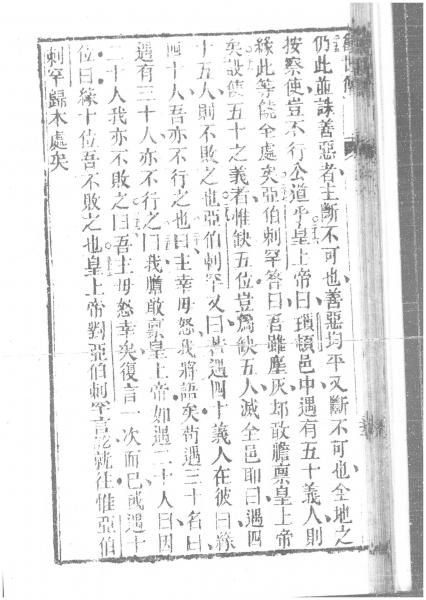 仍此並誅善惡者主斷不可也善惡均平又斷不可也全地之
按察使豈不行公道乎皇上帝曰瑣頓邑中遇有五十義人則
緣此等饒全處矣亞伯剌罕答曰吾雖塵灰却敢膽禀皇上帝
矣設使五十之義者惟缺五位豈爲缺五人滅全邑耶曰遇四
十五人則不敗之也亞伯剌罕又曰若遇四十義人在彼曰緣
四十人吾亦不行之也曰主幸毋怒我將語矣苟遇三十名曰
遇有三十人亦不行之曰我膽敢禀皇上帝如遇二十人曰因
二十人我亦不敗之曰吾主毋怒幸矣復言一次而已或遇十
位曰緣十位吾不敗之也皇上帝對亞伯剌罕言訖就往惟亞伯
剌罕歸本處矣